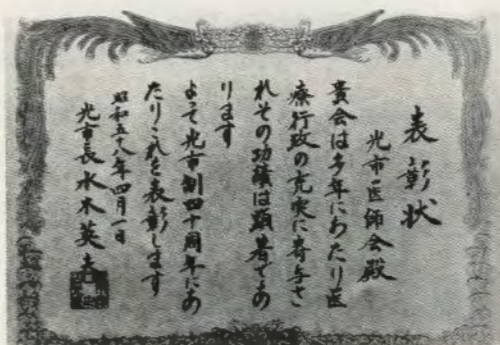 表彰状
光市医師会殿
貴会は多年にわたり医
療行政の充実に寄与さ
れその功績は顕著であ
ります
よって光市制四十周年にあ
たりこれを表彰します
昭和五十八年四月一日
光市長水木英夫